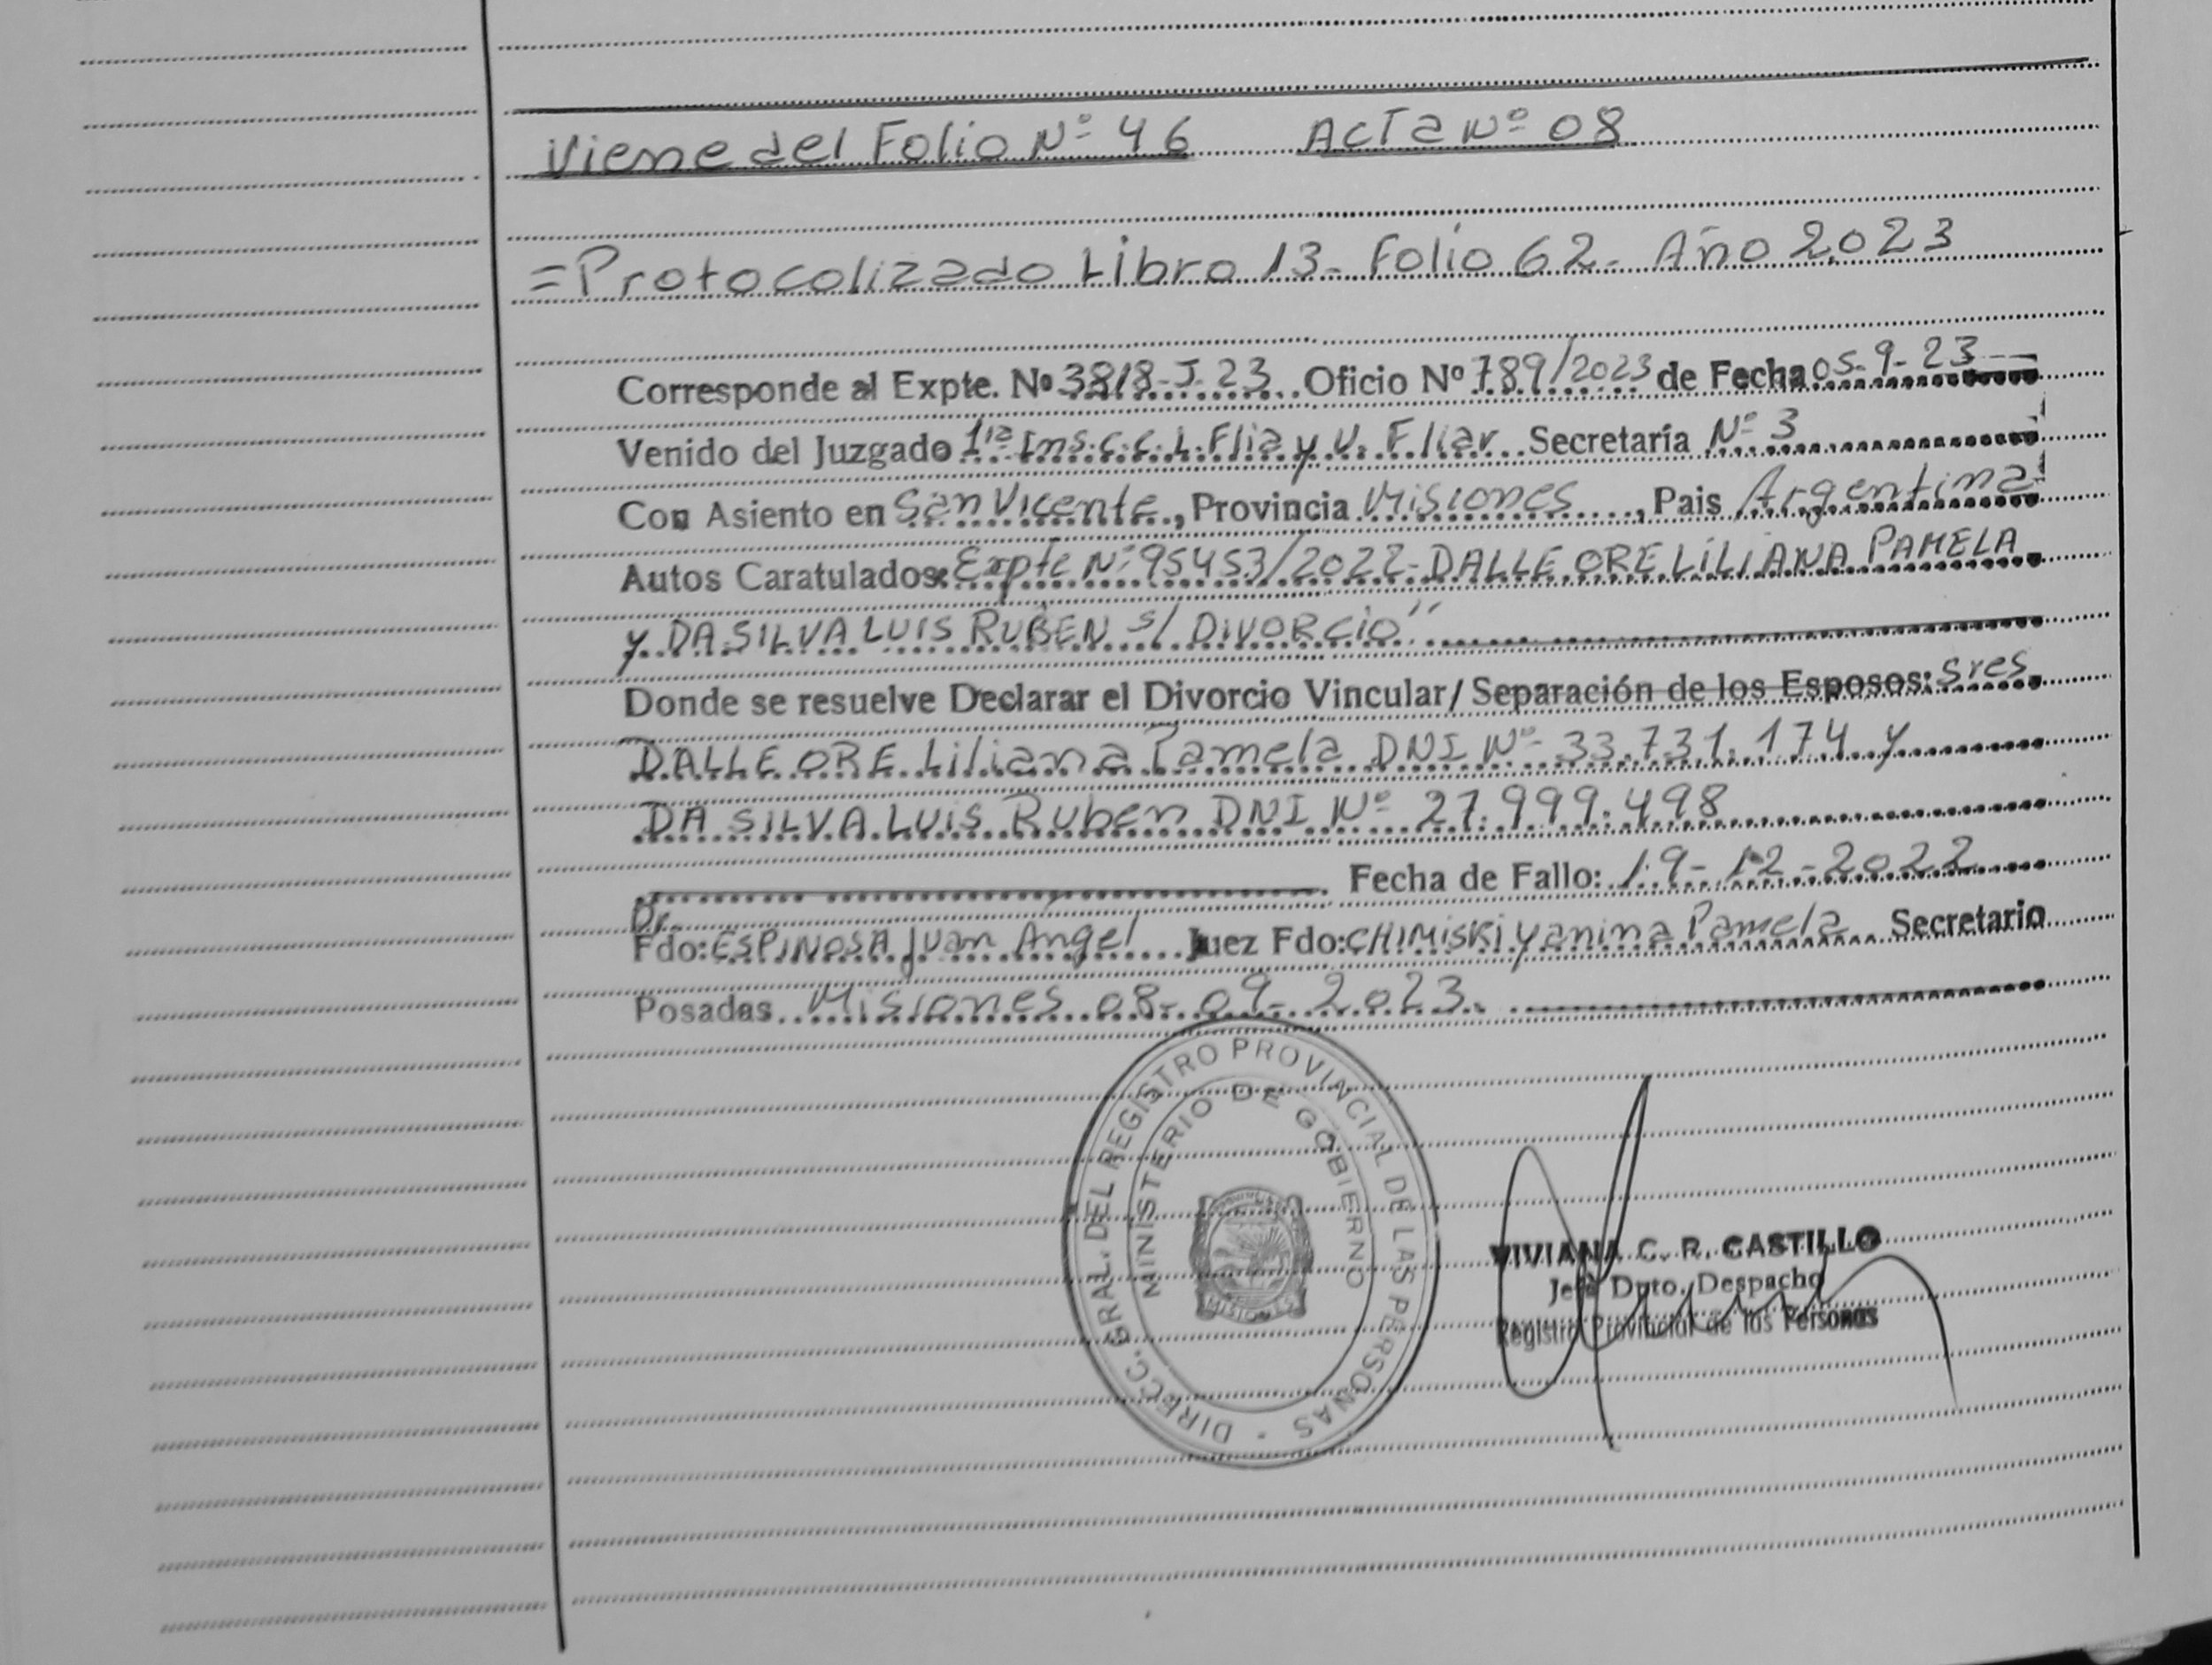 Viene del Folio Nº 46 Acta Nº 08
=Protocolizado Libro 13- Folio 62- Año 2023
Corresponde al Expte. Nº 3818-J-23 Oficio Nº 789/2023 de Fecha 05-9-23
Venido del Juzgado 1ra Ins. C. C. L. Flia y V. Fliar Secretaría Nº 3
Con Asiento en San Vicente, Provincia Misiones, Pais Argentina
Autos Caratulados: Expte Nº 95453/2022- DALLE ORE LILIANA PAMELA
y DA SILVA LUIS RUBEN s/ DIVORCIO"
Donde se resuelve Declarar el Divorcio Vincular/ Separación de los Esposos: Sres
DALLE ORE Liliana Pamela DNI Nº 33.731.174 y
DA SILVA LUIS Ruben DNI Nº 27.999.498
Fecha de Fallo: 19-12-2022
Dr.
Fdo: ESPINOSA Juan Angel Juez Fdo: CHIMISKI Yanina Pamela Secretario
Posadas Misiones 08-09-2023.
DIRECC. GRAL. DEL REGISTRO PROVINCIAL DE LAS PERSONAS -
MINISTERIO DE GOBIERNO
MISIONES
VIVIANA C. R. CASTILLO
Jefe Dpto. Despacho
Registro Provincial de las Personas